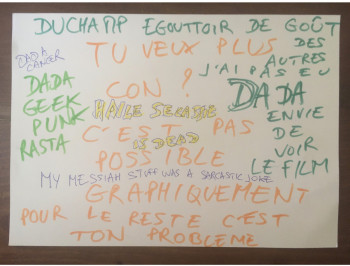 DUCHAMP EGOUTTOIR DE GOÛT
DES
AUTRES
DADA
CANCER
TU VEUX PLUS
J'AI PAS EU
CON ?
DADA
DADA
GEEK
PUNK
RASTA
HAILE SELASSIE
ENVIE
DE
VOIR
LE FILM
C'EST PAS
IS DEAD
POSSIBLE
MY MESSIAH STUFF WAS A SARCASTIC JOKE
GRAPHIQUEMENT
POUR LE RESTE C'EST
TON PROBLEME